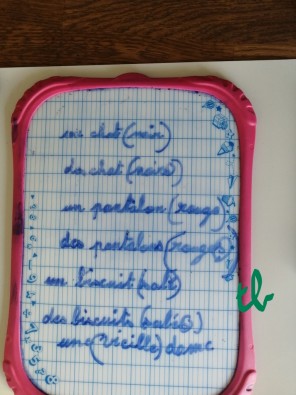 un chat (noir)
des chat (noirs)
un pantalon (rouge)
des pantalons (rouges)
un biscuit (salé)
des biscuits (salés)
une (vieille) dame
tb